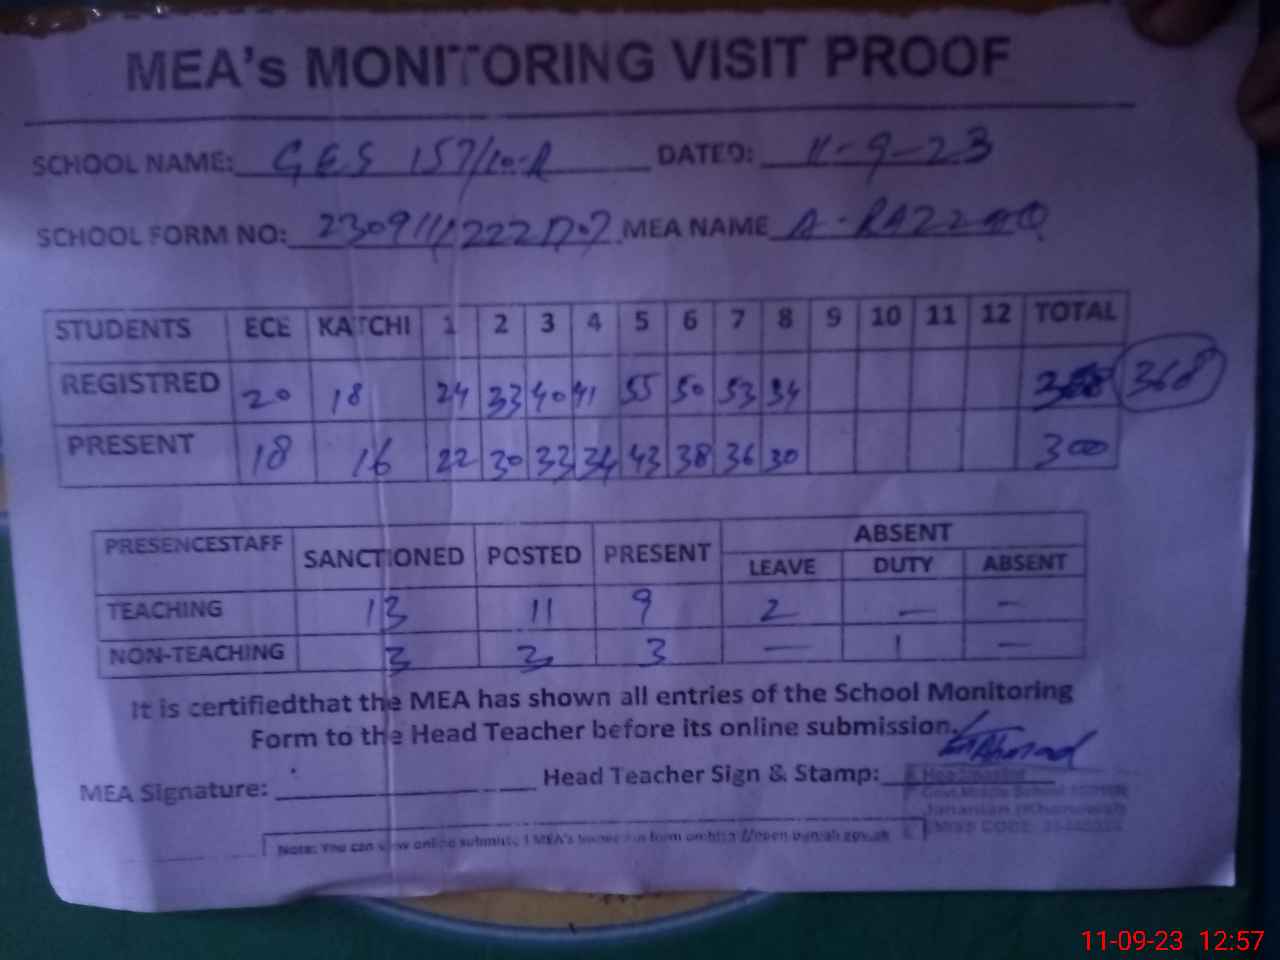 MEA's MONITORING VISIT PROOF
SCHOOL NAME: GES 157/10-R DATED: 11-9-23
SCHOOL FORM NO: MEA NAME A-RAZZAQ
STUDENTS ECE KATCHI 1 2 3 4 5 6 7 8 9 10 11 12 TOTAL
REGISTRED 20 18 24 33 40 41 55 50 53 34 368
PRESENT 18 16 22 30 33 34 43 38 36 30 300
PRESENCESTAFF SANCTIONED POSTED PRESENT ABSENT
LEAVE DUTY ABSENT
TEACHING 13 11 9 2 — —
NON-TEACHING 3 3 3 — 1 —
It is certifiedthat the MEA has shown all entries of the School Monitoring
Form to the Head Teacher before its online submission.
MEA Signature: Head Teacher Sign & Stamp:
Headmaster
Note: You can view online
11-09-23 12:57